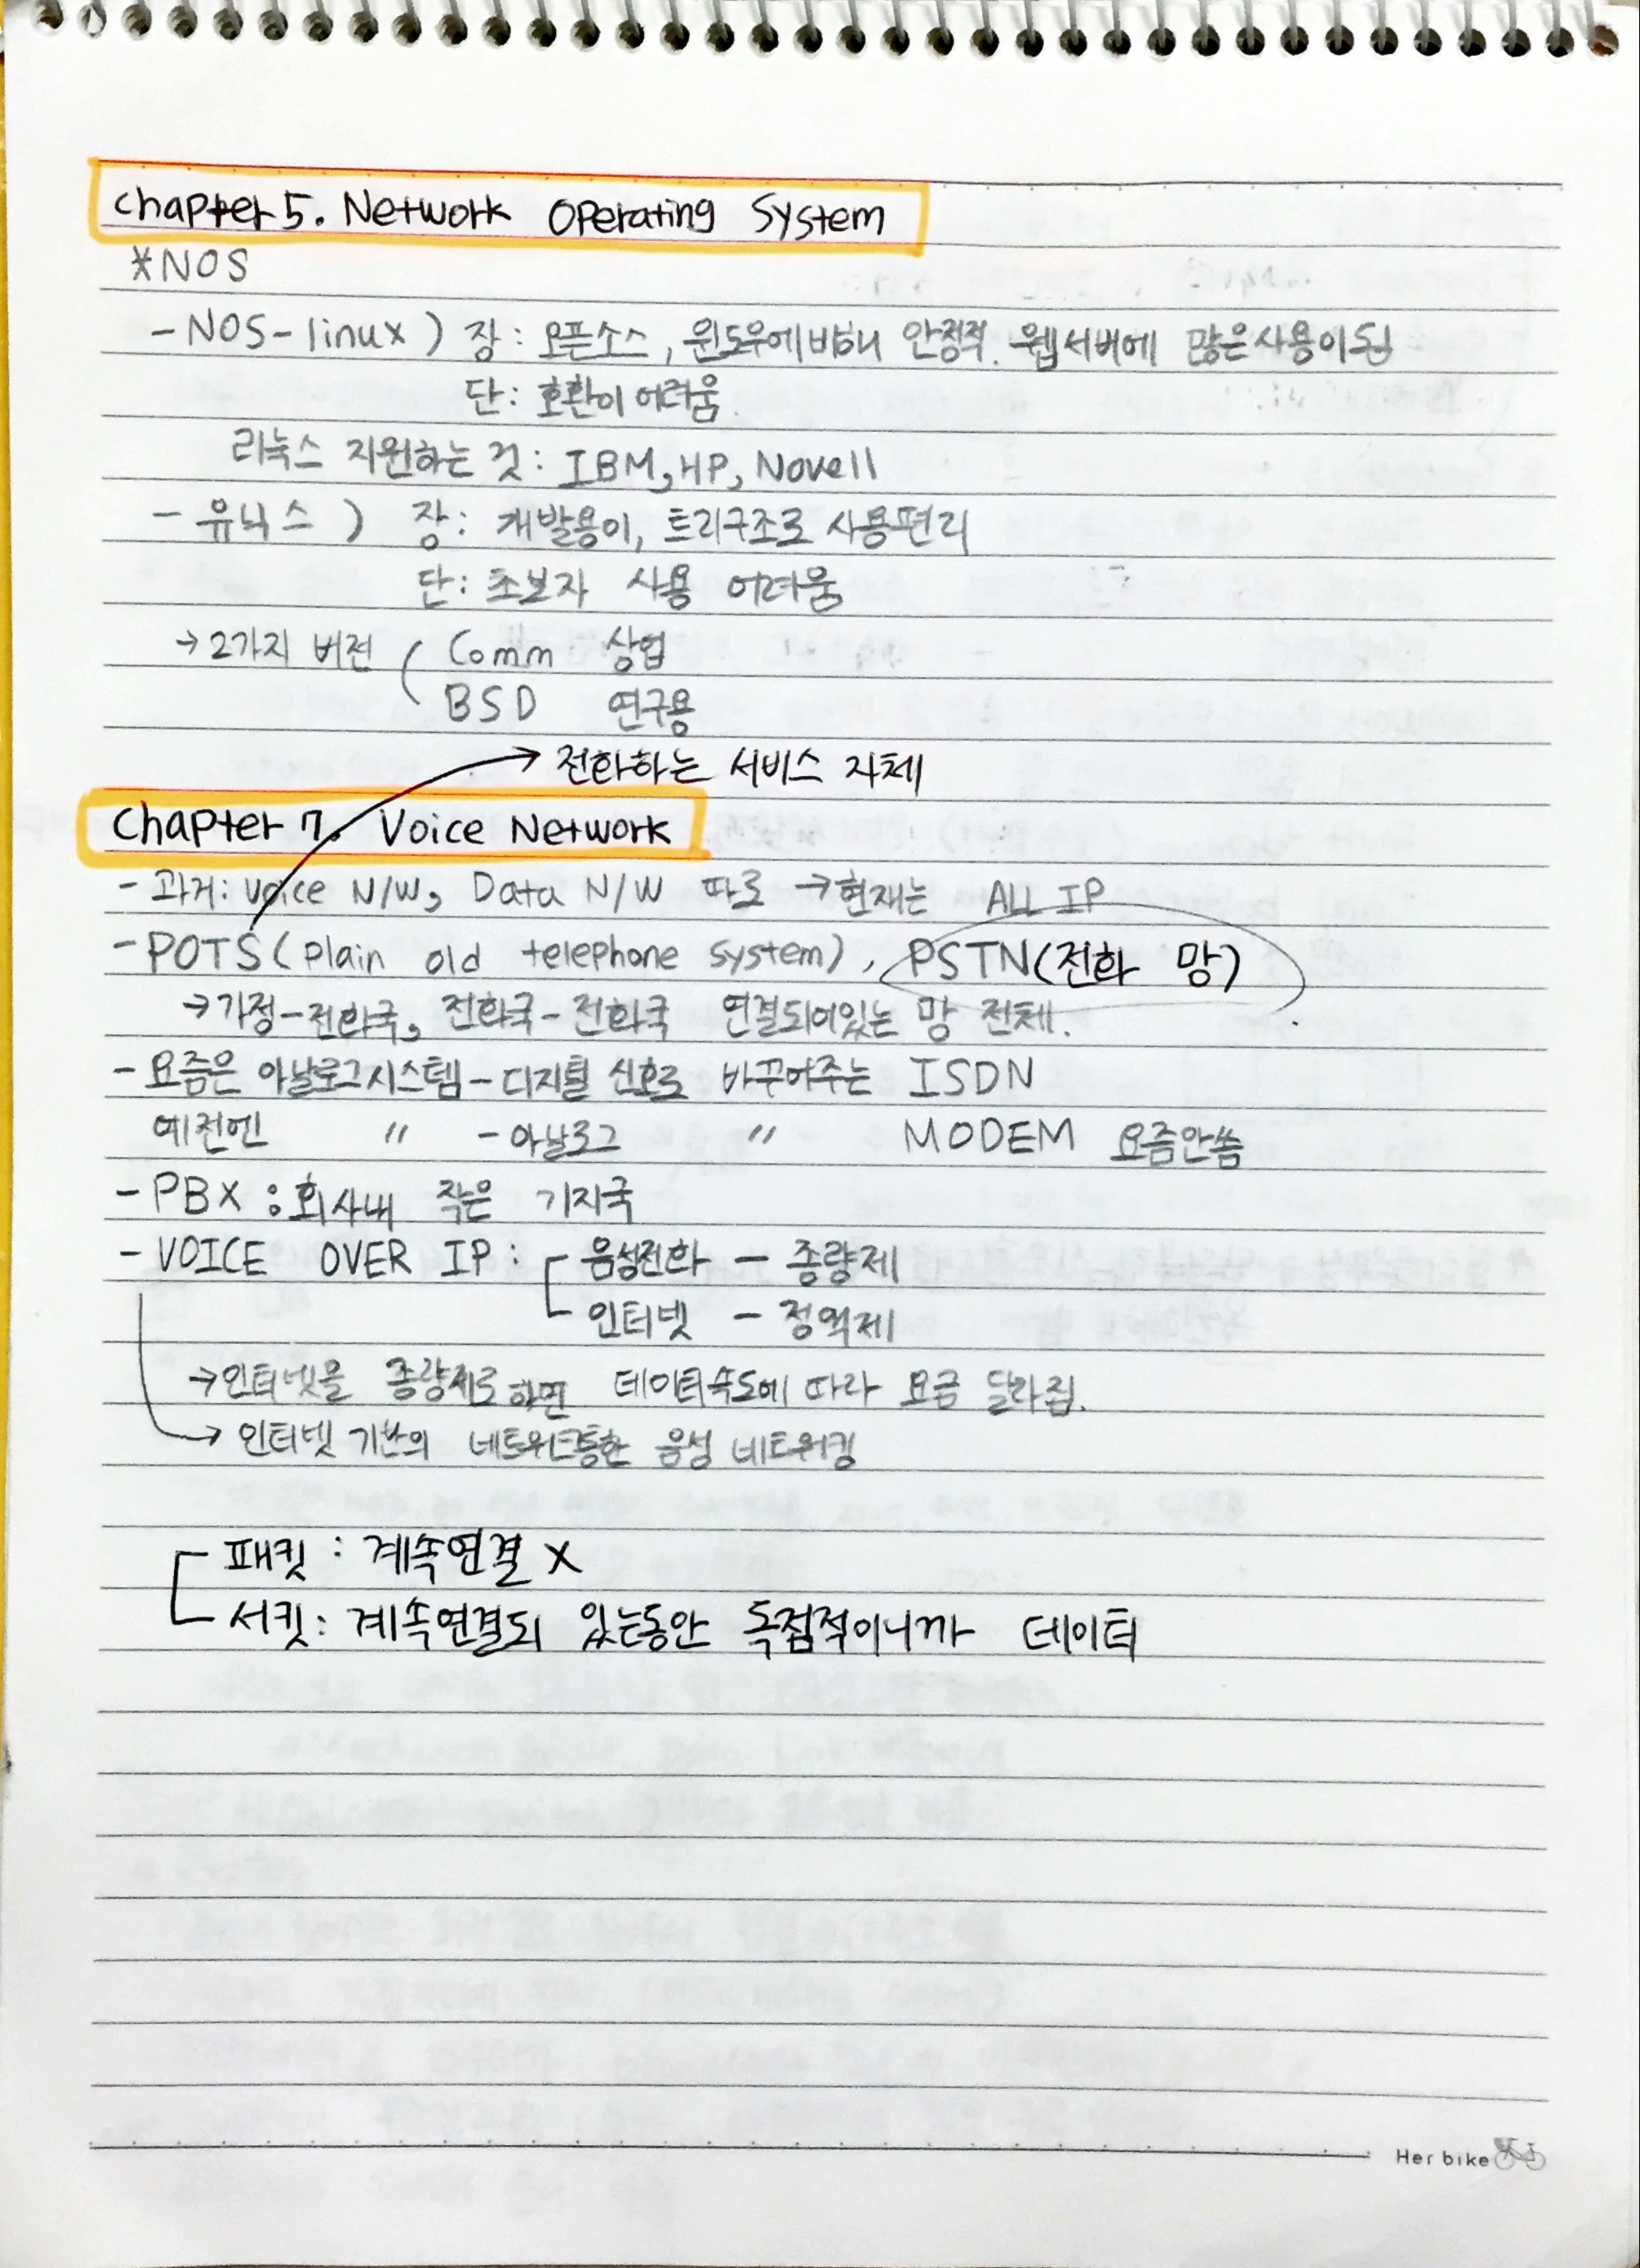 Chapter 5. Network Operating System
*NOS
- NOS-linux) 장: 오픈소스, 윈도우에비해 안정적. 웹서버에 많은사용이됨
단: 호환이 어려움.
리눅스 지원하는 것: IBM, HP, Novell
- 유닉스) 장: 개발용이, 트리구조로 사용편리
단: 초보자 사용 어려움
→ 2가지 버전 ( Comm 상업
BSD 연구용
→ 전화하는 서비스 자체
Chapter 7. Voice Network
- 과거: Voice N/W, Data N/W 따로 → 현재는 ALL IP
- POTS (Plain old telephone system), PSTN(전화 망)
→ 가정-전화국, 전화국-전화국 연결되어있는 망 전체.
- 요즘은 아날로그시스템 - 디지털 신호로 바꾸어주는 ISDN
예전엔 〃 - 아날로그 〃 MODEM 요즘안씀
- PBX : 회사내 작은 기지국
- VOICE OVER IP : 음성전화 - 종량제
인터넷 - 정액제
→ 인터넷을 종량제로하면 데이터속도에 따라 요금 달라짐.
→ 인터넷 기반의 네트워크통한 음성 네트워킹
패킷 : 계속연결 X
서킷 : 계속연결되 있는동안 독점적이니까 데이터
Her bike